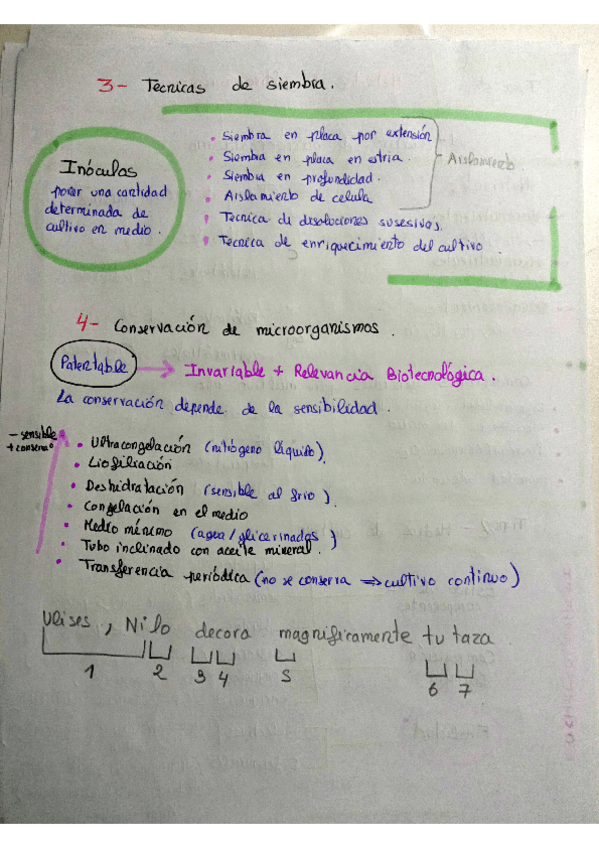 3- Tecnicas de siembra.
Inóculas
poner una cantidad
determinada de
cultivo en medio.
• Siembra en placa por extensión
• Siembra en placa en estria.
• Siembra en profundidad.
• Aislamiento de celula
Aislamiento
• Tecnica de desoluciones susesivas.
• Tecnica de enriquecimiento del cultivo
4- Conservación de microorganismos.
Patentable → Invariable + Relevancia Biotecnológica.
La conservación depende de la sensibilidad.
- sensible
+ conserva
• Ultracongelación (nitrógeno líquido)
• Liofiliación
• Deshidratación (sensible al frio)
• Congelación en el medio
• Medio mínimo (agua/glicerinadas)
• Tubo inclinado con aceite mineral.
• Transferencia periódica (no se conserva ⇒ cultivo continuo)
Ulises, Nilo decora magnificamente tu taza
1 2 3 4 5 6 7